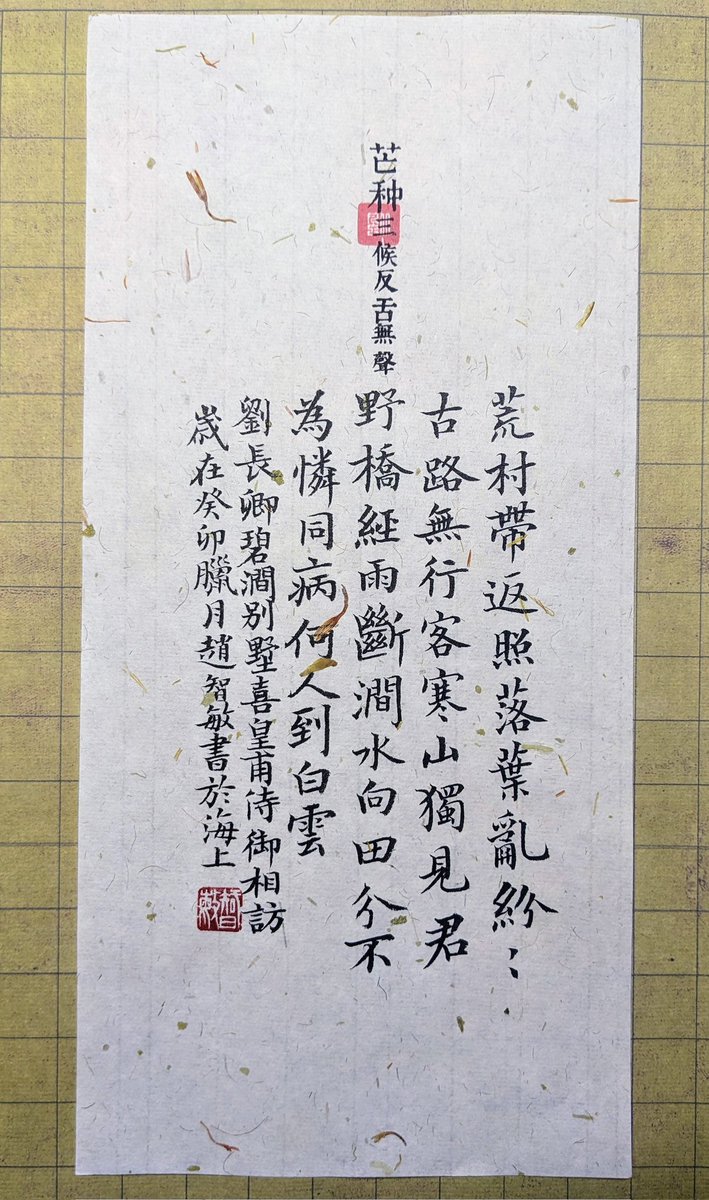 芒种三候反舌無聲
荒村帶返照落葉亂紛〻
古路無行客寒山獨見君
野橋經雨斷澗水向田分不
為憐同病何人到白雲
劉長卿碧澗别墅喜皇甫侍御相訪
歲在癸卯臘月趙智敏書於海上
智敏